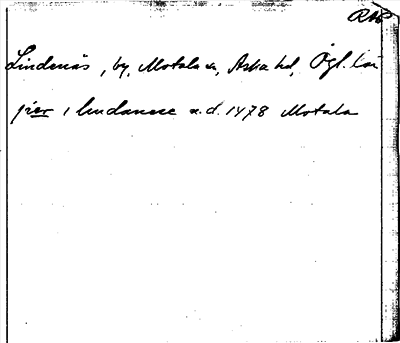 RAP
Lindenäs, by, Motala sn, Aska hd, Ögl. län
pær i lindanese u.d. 1478 Motala